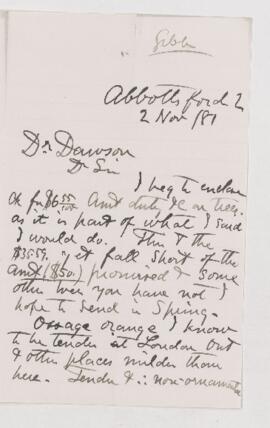 Gibb
Abbottsford Q
2 Nov /81
Dr Dawson
Dr Sir
I beg to enclose
Ck for $6.55 Amt duty &c on trees.
as it is part of what I said
I would do. This & the
$35.59 is yet fall short of the
amt ($50) promised & some
other trees you have not I
hope to send in Spring.
Ossage orange I know
to be tender at London Ont
& other places milder than
here. Tender & ∴ non-ornamental